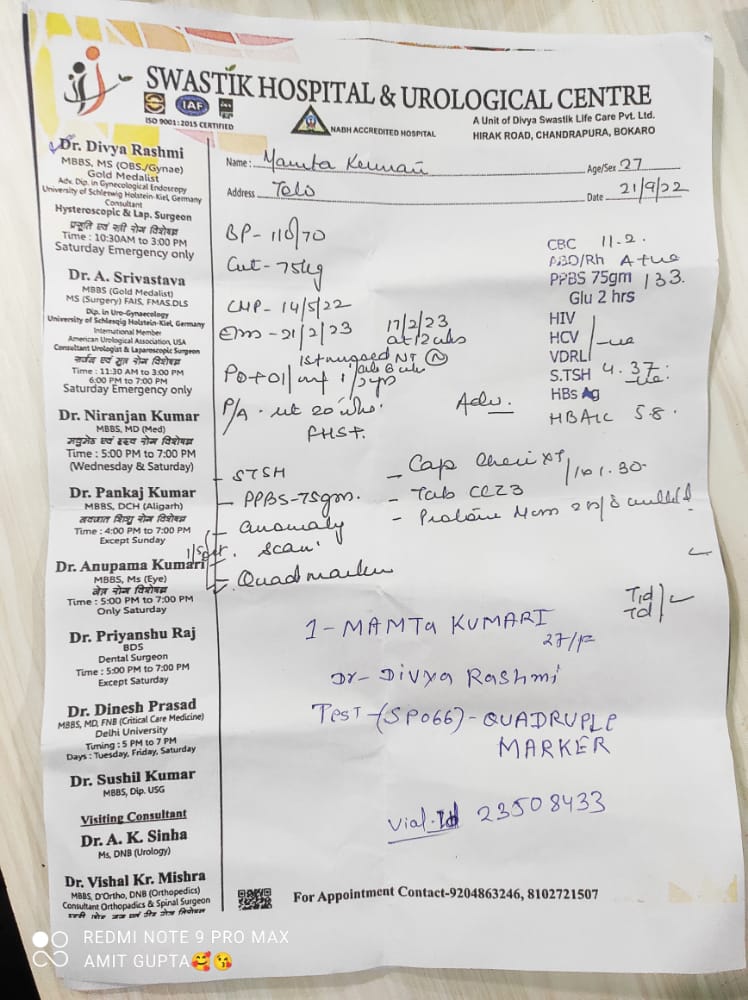 SWASTIK HOSPITAL & UROLOGICAL CENTRE
IAF
ISO 9001:2015 CERTIFIED
NABH ACCREDITED HOSPITAL
A Unit of Divya Swastik Life Care Pvt. Ltd.
HIRAK ROAD, CHANDRAPURA, BOKARO
Dr. Divya Rashmi
MBBS, MS (OBS./Gynae)
Gold Medalist
Adv. Dip. in Gynecological Endoscopy
University of Schleswig Holstein-Kiel, Germany
Consultant
Hysteroscopic & Lap. Surgeon
प्रसूति एवं स्त्री रोग विशेषज्ञ
Time : 10:30AM to 3:00 PM
Saturday Emergency only
Dr. A. Srivastava
MBBS (Gold Medalist)
MS (Surgery) FAIS, FMAS.DLS
Dip. in Uro-Gynaecology
University of Schlesqig Holstein-Kiel, Germany
International Member
American Urological Association, USA
Consultant Urologist & Laparoscopic Surgeon
सर्जन एवं मूत्र रोग विशेषज्ञ
Time : 11:30 AM to 3:00 PM
6:00 PM to 7:00 PM
Saturday Emergency only
Dr. Niranjan Kumar
MBBS, MD (Med)
मधुमेह एवं हृदय रोग विशेषज्ञ
Time : 5:00 PM to 7:00 PM
(Wednesday & Saturday)
Dr. Pankaj Kumar
MBBS, DCH (Aligarh)
नवजात शिशु रोग विशेषज्ञ
Time : 4:00 PM to 7:00 PM
Except Sunday
Dr. Anupama Kumari
MBBS, Ms (Eye)
नेत्र रोग विशेषज्ञ
Time : 5:00 PM to 7:00 PM
Only Saturday
Dr. Priyanshu Raj
BDS
Dental Surgeon
Time : 5:00 PM to 7:00 PM
Except Saturday
Dr. Dinesh Prasad
MBBS, MD, FNB (Critical Care Medicine)
Delhi University
Timing : 5 PM to 7 PM
Days : Tuesday, Friday, Saturday
Dr. Sushil Kumar
MBBS, Dip. USG
Visiting Consultant
Dr. A. K. Sinha
Ms, DNB (Urology)
Dr. Vishal Kr. Mishra
MBBS, D'Ortho, DNB (Orthopedics)
Consultant Orthopadics & Spinal Surgeon
Name : Mamta Kumari Age/Sex 27
Address Telo Date 21/9/22
BP - 110/70
Cut - 75kg
LMP - 14/5/22
21/2/23 17/2/23
at 12 wks
NT N
P0+01
P/A - ut 20 wks
FHS+
CBC 11.2.
ABO/Rh A +ve
PPBS 75gm 133.
Glu 2 hrs
HIV
HCV -ve
VDRL
S.TSH 4.37
HBs Ag
HBA1C 5.8.
Adv.
- STSH
- PPBS-75gm.
- anomaly
scan
- Quad marker
- Cap XT
- Tab CCZ3
Td
1 - MAMTA KUMARI
27/F
Dr - Divya Rashmi
Test - (SP066) - QUADRUPLE
MARKER
Vial Id 23508433
For Appointment Contact-9204863246, 8102721507
REDMI NOTE 9 PRO MAX
AMIT GUPTA🥰😘